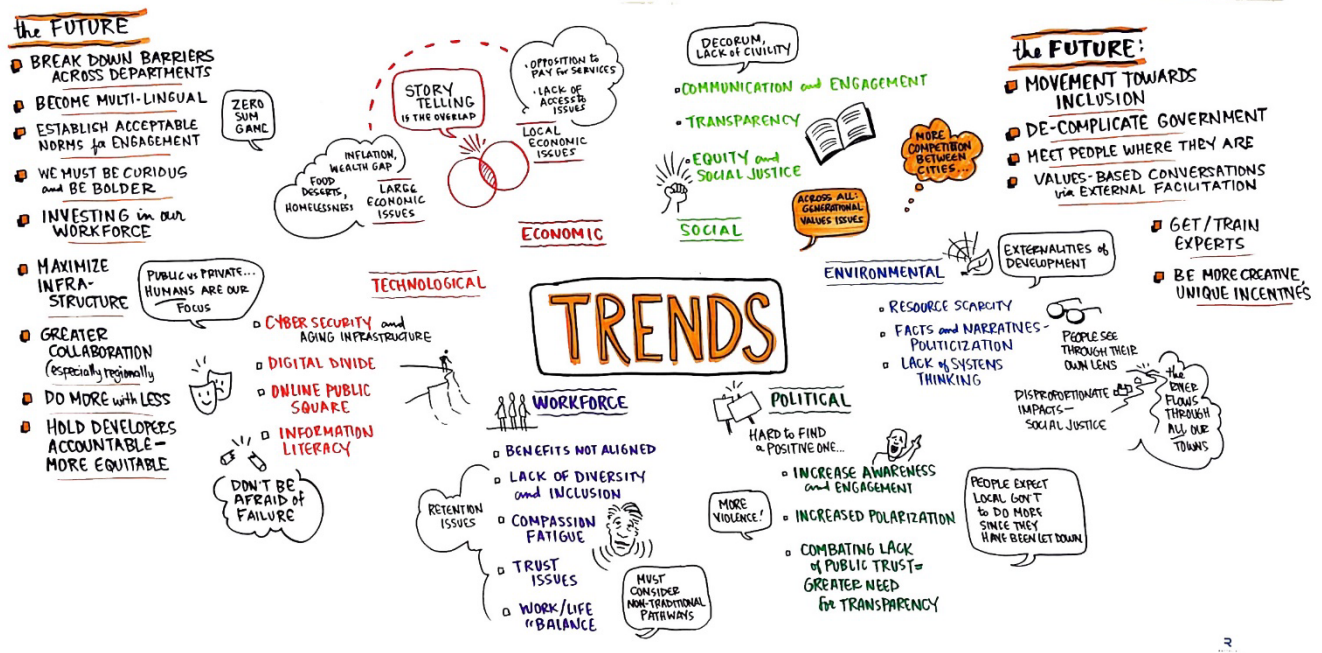 the FUTURE
BREAK DOWN BARRIERS
ACROSS DEPARTMENTS
BECOME MULTI-LINGUAL
ESTABLISH ACCEPTABLE
NORMS for ENGAGEMENT
WE MUST BE CURIOUS
and BE BOLDER
INVESTING in our
WORKFORCE
MAXIMIZE
INFRA-
STRUCTURE
GREATER
COLLABORATION
(especially regionally
DO MORE with LESS
HOLD DEVELOPERS
ACCOUNTABLE-
MORE EQUITABLE
ZERO
SUM
GAME
PUBLIC vs PRIVATE...
HUMANS ARE OUR
FOCUS
DON'T BE
AFRAID of
FAILURE
TRENDS
TECHNOLOGICAL
CYBER SECURITY and
AGING INFRASTRUCTURE
DIGITAL DIVIDE
ONLINE PUBLIC
SQUARE
INFORMATION
LITERACY
ECONOMIC
INFLATION,
WEALTH GAP
FOOD
DESERTS,
HOMELESSNESS
LARGE
ECONOMIC
ISSUES
STORY
TELLING
IS THE OVERLAP
• OPPOSITION to
PAY for SERVICES
• LACK OF
ACCESS to
ISSUES
LOCAL
ECONOMIC
ISSUES
SOCIAL
DECORUM,
LACK OF CIVILITY
• COMMUNICATION and ENGAGEMENT
• TRANSPARENCY
• EQUITY and
SOCIAL JUSTICE
ACROSS ALL:
GENERATIONAL
VALUES ISSUES
MORE
COMPETITION
BETWEEN
CITIES...
ENVIRONMENTAL
EXTERNALITIES of
DEVELOPMENT
RESOURCE SCARCITY
FACTS and NARRATIVES-
POLITICIZATION
LACK of SYSTEMS
THINKING
PEOPLE SEE
THROUGH THEIR
OWN LENS
DISPROPORTIONATE
IMPACTS-
SOCIAL JUSTICE
the
RIVER
FLOWS
THROUGH
ALL OUR
TOWNS
WORKFORCE
BENEFITS NOT ALIGNED
LACK OF DIVERSITY
and INCLUSION
COMPASSION
FATIGUE
TRUST
ISSUES
WORK/LIFE
"BALANCE
RETENTION
ISSUES
MUST
CONSIDER
NON-TRADITIONAL
PATHWAYS
POLITICAL
HARD to FIND
a POSITIVE ONE...
INCREASE AWARENESS
and ENGAGEMENT
INCREASED POLARIZATION
COMBATING LACK
of PUBLIC TRUST=
GREATER NEED
for TRANSPARENCY
MORE
VIOLENCE!
PEOPLE EXPECT
LOCAL GOV'T
to DO MORE
SINCE THEY
HAVE BEEN LET DOWN
the FUTURE:
MOVEMENT TOWARDS
INCLUSION
DE-COMPLICATE GOVERNMENT
MEET PEOPLE WHERE THEY ARE
VALUES-BASED CONVERSATIONS
via EXTERNAL FACILITATION
GET/TRAIN
EXPERTS
BE MORE CREATIVE,
UNIQUE INCENTIVES